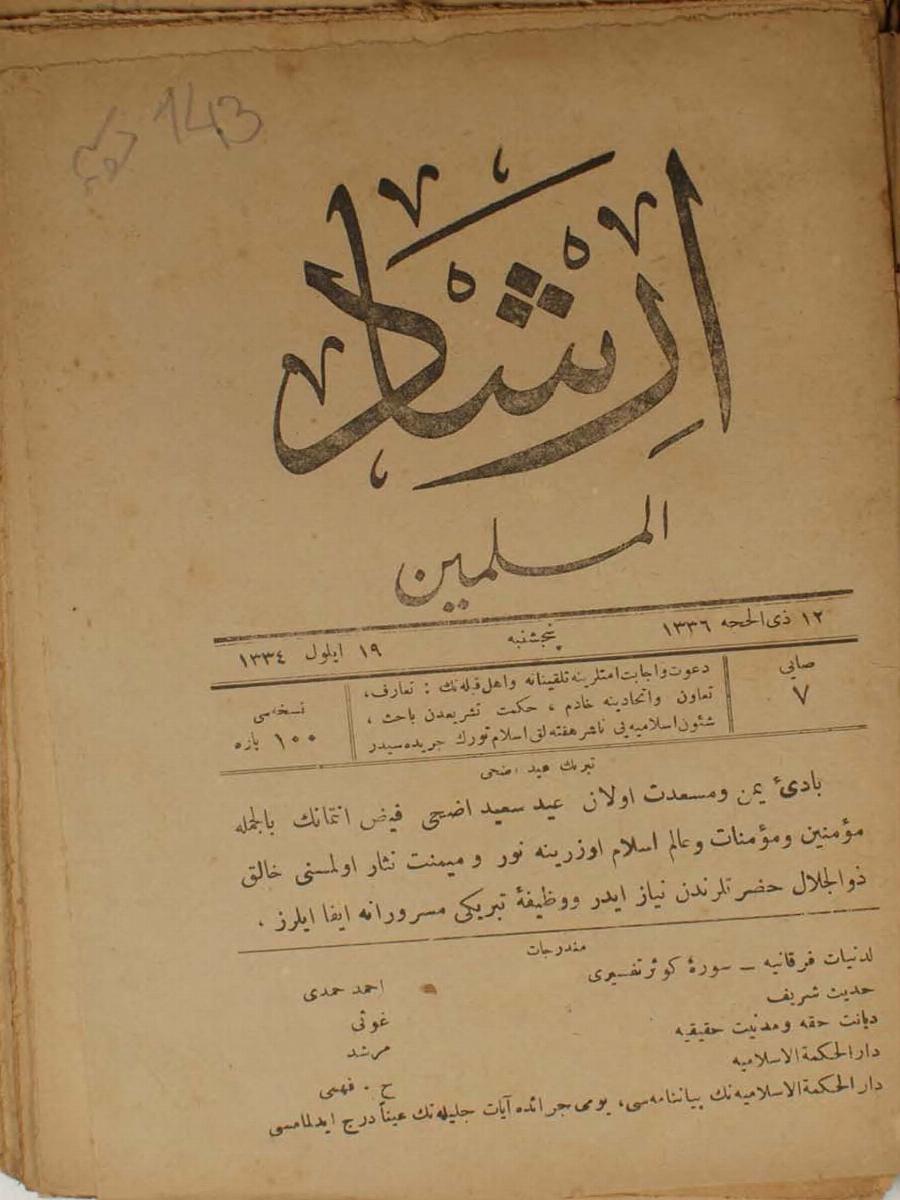 143
ارشاد
المسلمين
١٢ ذى الحجه ١٣٣٦ پنجشنبه ١٩ ايلول ١٣٣٤
صايى ٧
دعوت واجابت امتلرينه تلقيناته واهل قبله نك : تعارف،
تعاون واتحادينه خادم ، حكمت تشريعدن باحث ،
شئون اسلاميه يى ناشر هفته لق اسلام تورك جريده سيدر
نسخه سى
١٠٠ پاره
تبريك عيد اضحى
بادئ يمن ومسعدت اولان عيد سعيد اضحى فيض انتمانك بالجمله
مؤمنين ومؤمنات وعالم اسلام اوزرينه نور و ميمنت نثار اولمسنى خالق
ذوالجلال حضرتلرندن نياز ايدر ووظيفۀ تبريكى مسرورانه ايفا ايلرز .
مندرجات
لدنيات فرقانيه — سورۀ كوثر تفسيرى احمد حمدى
حديث شريف غوثى
ديانت حقه ومدنيت حقيقيه مرشد
دار الحكمة الاسلاميه ح . فهمى
دار الحكمة الاسلاميه نك بياننامه سى، يومى جرائده آيات جليله نك عيناً درج ايدلمامسى